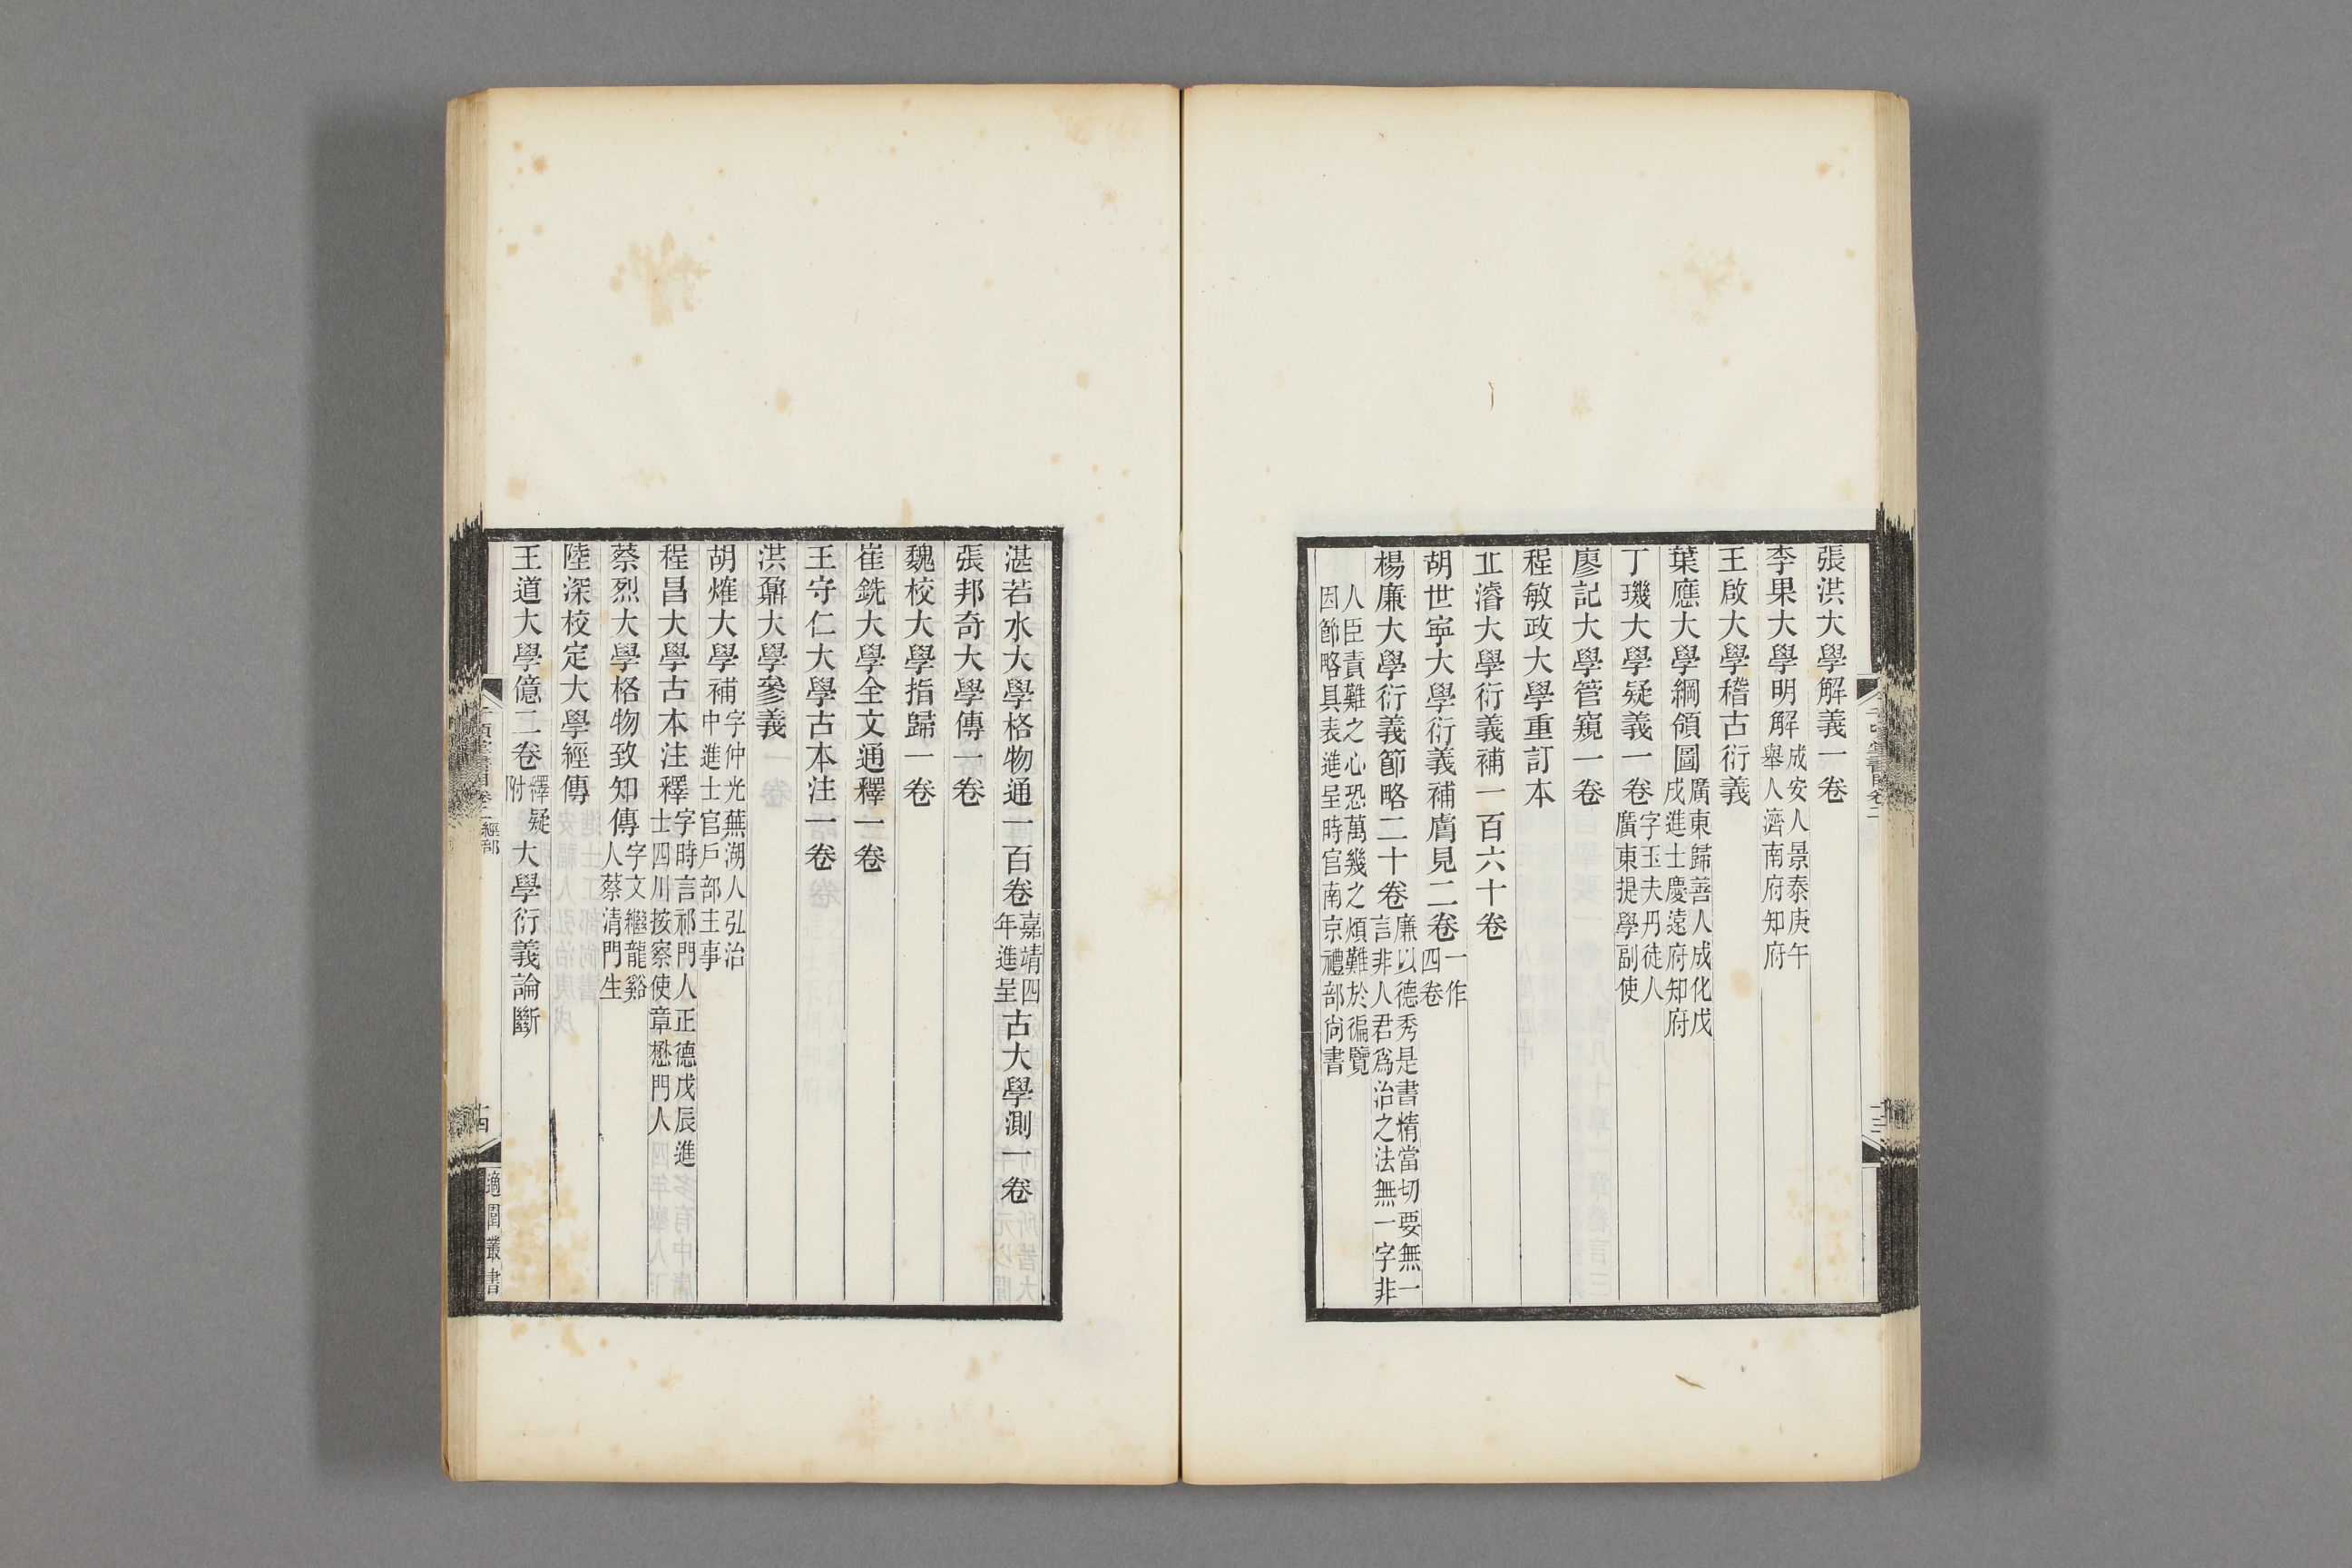 張洪大學解義一卷
李果大學明解成安人景泰庚午舉人濟南府知府
王啟大學稽古衍義
葉應大學綱領圖廣東歸善人成化戊戌進士慶遠府知府
丁璣大學疑義一卷字玉夫丹徒人廣東提學副使
廖記大學管窺一卷
程敏政大學重訂本
丠濬大學衍義補一百六十卷
胡世寧大學衍義補膚見二卷一作四卷
楊廉大學衍義節略二十卷廉以德秀是書精當切要無一言非人君爲治之法無一字非
人臣責難之心恐萬幾之煩難於徧覽因節略具表進呈時官南京禮部尙書
湛若水大學格物通一百卷嘉靖四年進呈古大學測一卷
張邦奇大學傳一卷
魏校大學指歸一卷
崔銑大學全文通釋一卷
王守仁大學古本注一卷
洪鼐大學參義
胡爟大學補字仲光蕪湖人弘治中進士官戶部主事
程昌大學古本注釋字時言祁門人正德戊辰進士四川按察使章懋門人
蔡烈大學格物致知傳字文繼龍谿人蔡清門生
陸深校定大學經傳
王道大學億二卷附釋疑大學衍義論斷
經部
十四
適園叢書